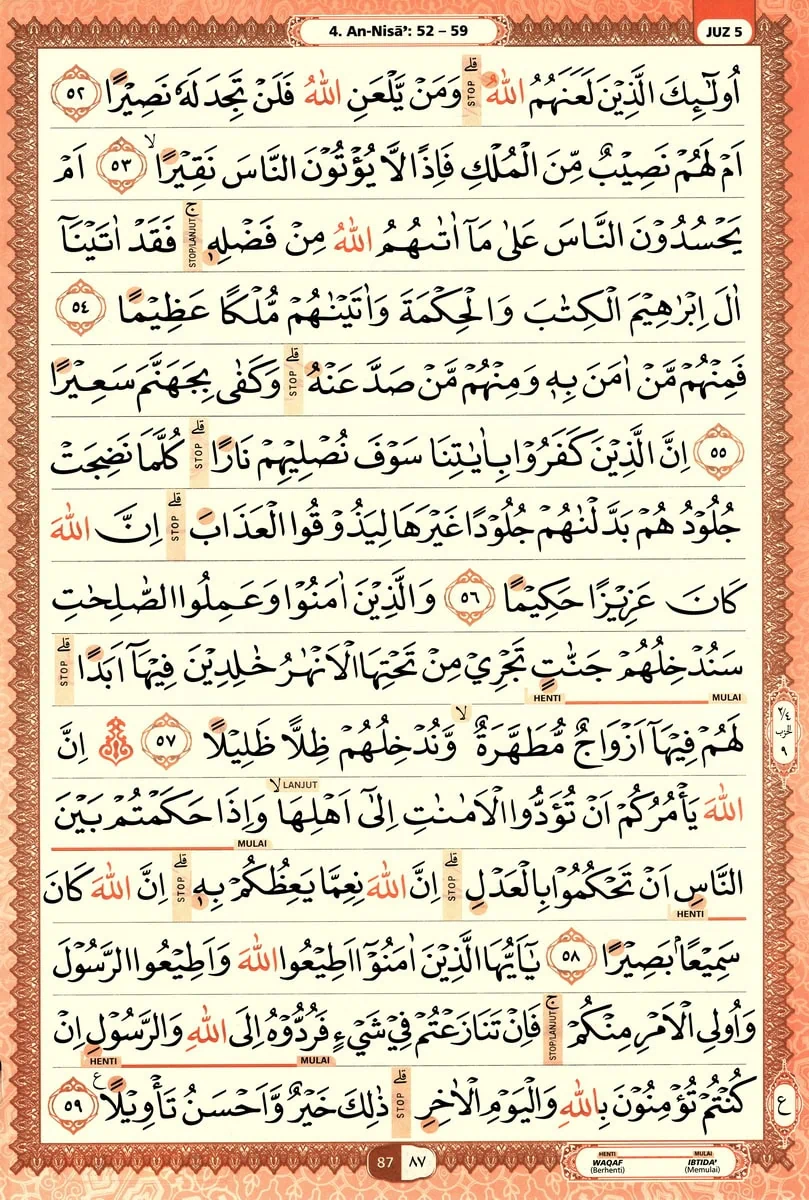 4. An-Nisā': 52 – 59
JUZ 5
اُولٰۤىِٕكَ الَّذِيْنَ لَعَنَهُمُ اللّٰهُ ۗ STOP وَمَنْ يَّلْعَنِ اللّٰهُ فَلَنْ تَجِدَ لَهٗ نَصِيْرًا ٥٢
اَمْ لَهُمْ نَصِيْبٌ مِّنَ الْمُلْكِ فَاِذًا لَّا يُؤْتُوْنَ النَّاسَ نَقِيْرًاۙ ٥٣ اَمْ
يَحْسُدُوْنَ النَّاسَ عَلٰى مَآ اٰتٰىهُمُ اللّٰهُ مِنْ فَضْلِهٖۚ STOP/LANJUT فَقَدْ اٰتَيْنَآ
اٰلَ اِبْرٰهِيْمَ الْكِتٰبَ وَالْحِكْمَةَ وَاٰتَيْنٰهُمْ مُّلْكًا عَظِيْمًا ٥٤
فَمِنْهُمْ مَّنْ اٰمَنَ بِهٖ وَمِنْهُمْ مَّنْ صَدَّ عَنْهُ ۗ STOP وَكَفٰى بِجَهَنَّمَ سَعِيْرًا
٥٥ اِنَّ الَّذِيْنَ كَفَرُوْا بِاٰيٰتِنَا سَوْفَ نُصْلِيْهِمْ نَارًاۗ STOP كُلَّمَا نَضِجَتْ
جُلُوْدُهُمْ بَدَّلْنٰهُمْ جُلُوْدًا غَيْرَهَا لِيَذُوْقُوا الْعَذَابَۗ STOP اِنَّ اللّٰهَ
كَانَ عَزِيْزًا حَكِيْمًا ٥٦ وَالَّذِيْنَ اٰمَنُوْا وَعَمِلُوا الصّٰلِحٰتِ
سَنُدْخِلُهُمْ جَنّٰتٍ تَجْرِيْ مِنْ تَحْتِهَا الْاَنْهٰرُ خٰلِدِيْنَ فِيْهَآ اَبَدًاۗ STOP
MULAI HENTI
لَهُمْ فِيْهَآ اَزْوَاجٌ مُّطَهَّرَةٌ ۙ وَّنُدْخِلُهُمْ ظِلًّا ظَلِيْلًا ٥٧ اِنَّ
٢/٤ الحزب ٩
اللّٰهَ يَأْمُرُكُمْ اَنْ تُؤَدُّوا الْاَمٰنٰتِ اِلٰٓى اَهْلِهَاۙ LANJUT وَاِذَا حَكَمْتُمْ بَيْنَ
MULAI
النَّاسِ اَنْ تَحْكُمُوْا بِالْعَدْلِ ۗ STOP اِنَّ اللّٰهَ نِعِمَّا يَعِظُكُمْ بِهٖ ۗ STOP اِنَّ اللّٰهَ كَانَ
HENTI
سَمِيْعًاۢ بَصِيْرًا ٥٨ يٰٓاَيُّهَا الَّذِيْنَ اٰمَنُوْٓا اَطِيْعُوا اللّٰهَ وَاَطِيْعُوا الرَّسُوْلَ
وَاُولِى الْاَمْرِ مِنْكُمْۚ STOP/LANJUT فَاِنْ تَنَازَعْتُمْ فِيْ شَيْءٍ فَرُدُّوْهُ اِلَى اللّٰهِ وَالرَّسُوْلِ اِنْ
MULAI HENTI
كُنْتُمْ تُؤْمِنُوْنَ بِاللّٰهِ وَالْيَوْمِ الْاٰخِرِۗ STOP ذٰلِكَ خَيْرٌ وَّاَحْسَنُ تَأْوِيْلًا ࣖ ٥٩
ع
87 ٨٧
HENTI MULAI
WAQAF IBTIDA'
(Berhenti) (Memulai)